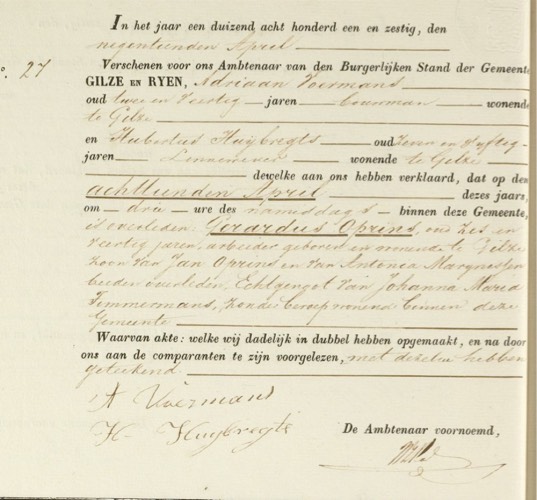 In het jaar een duizend acht honderd een en zestig, den
negentienden April
Verschenen voor ons Ambtenaar van den Burgerlijken Stand der Gemeente
No. 27
GILZE EN RYEN, Adriaan Voermans
oud twee en veertig jaren bouwman wonende
te Gilze
en Hubertus Huijbregts oud zeven en vyftig
jaren Linnenwever wonende te Gilze
dewelke aan ons hebben verklaard, dat op den
achttienden April dezes jaars,
om drie ure des namiddags binnen deze Gemeente,
is overleden Gerardus Oprins, oud zes en
veertig jaren, arbeider geboren en wonende te Gilze
zoon van Jan Oprins en van Antonia Marynessen
beiden overleden, Echtgenoot van Johanna Maria
Timmermans, zonder beroep wonend binnen deze
Gemeente
Waarvan akte: welke wij dadelijk in dubbel hebben opgemaakt, en na door
ons aan de comparanten te zijn voorgelezen, met dezelve hebben
geteekend
A Voermans
H. Huybregts
De Ambtenaar voornoemd,